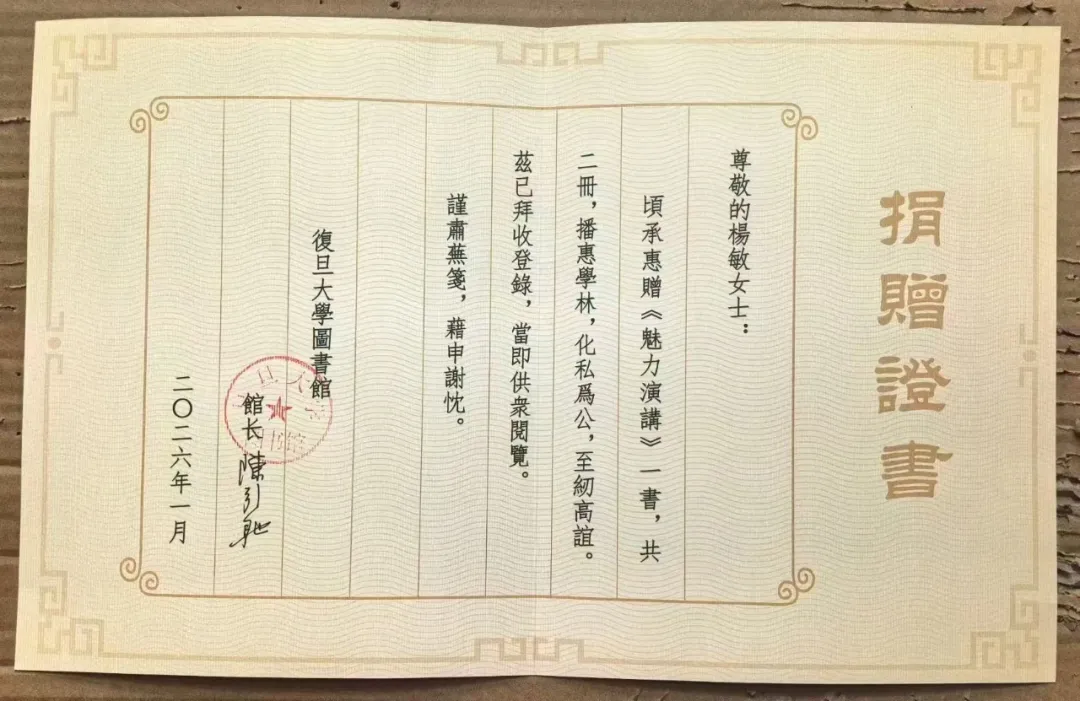 捐贈證書
尊敬的楊敏女士：
頃承惠贈《魅力演講》一書，共
二冊，播惠學林，化私爲公，至紉高誼。
茲已拜收登錄，當即供衆閱覽。
謹肅蕪箋，藉申謝忱。
復旦大學圖書館
館长 陳引馳
二〇二六年一月